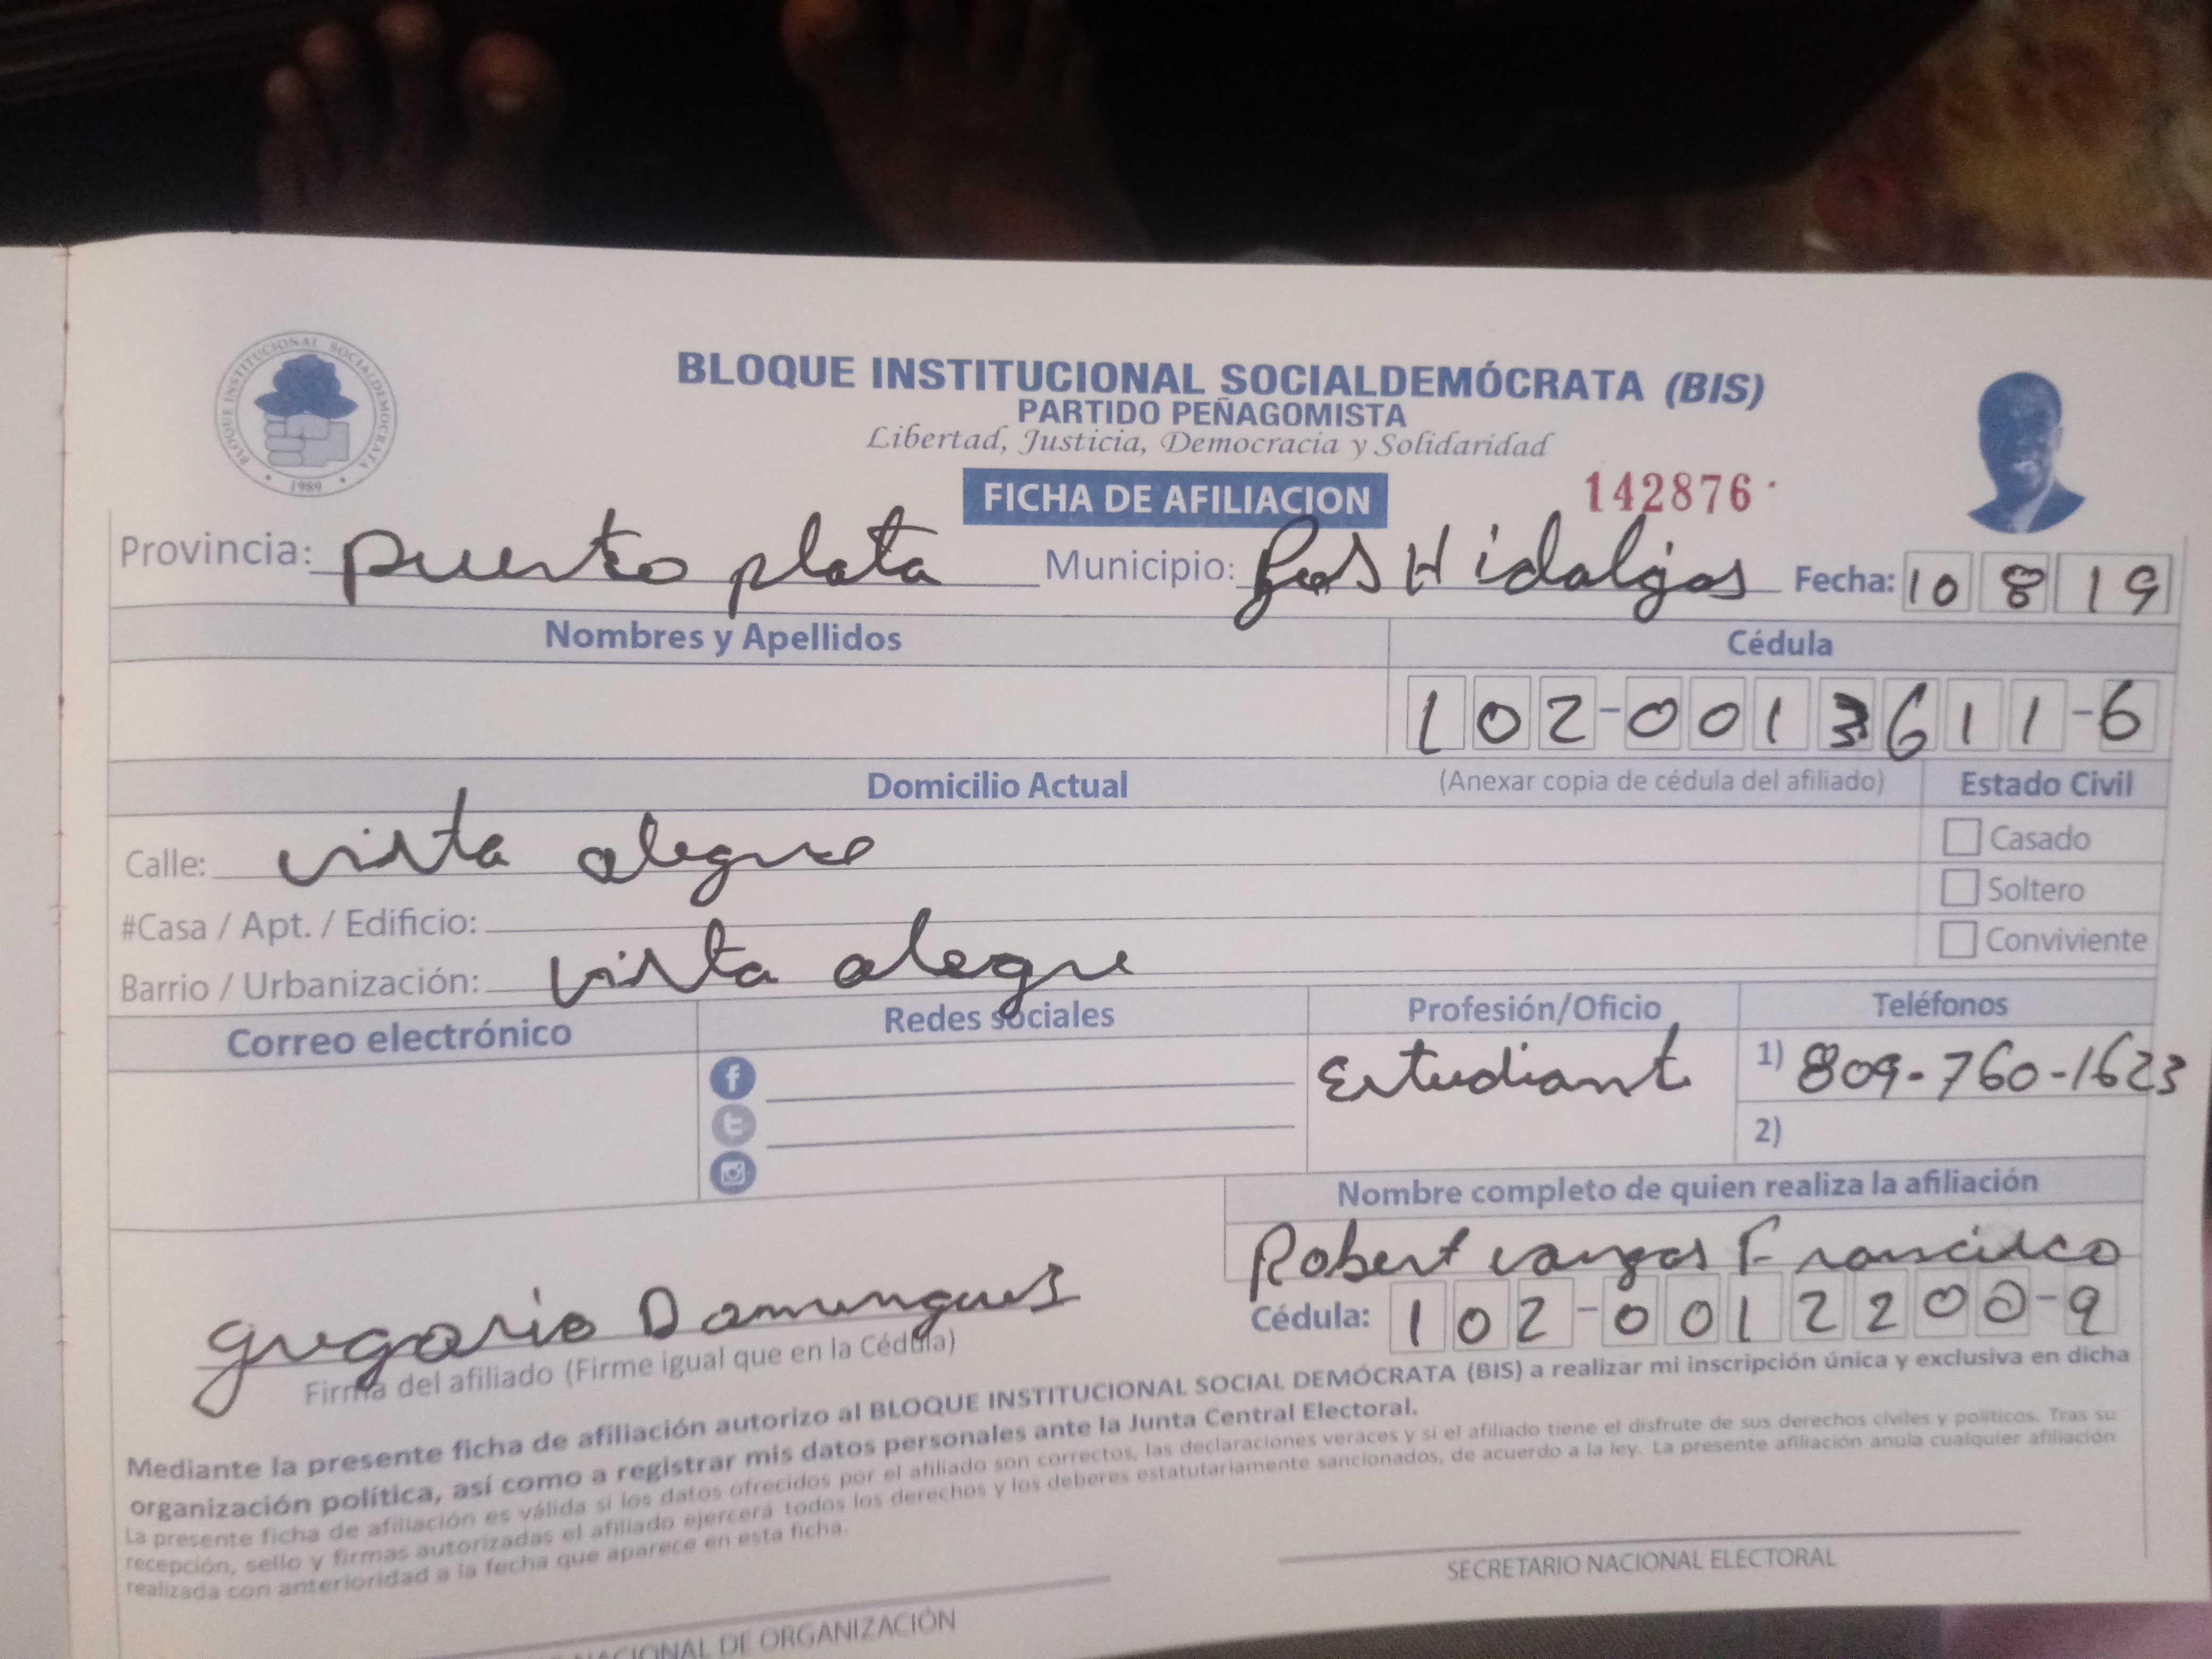 BLOQUE INSTITUCIONAL SOCIALDEMOCRATA
1989
BLOQUE INSTITUCIONAL SOCIALDEMÓCRATA (BIS)
PARTIDO PEÑAGOMISTA
Libertad, Justicia, Democracia y Solidaridad
FICHA DE AFILIACION
142876
Provincia: puerto plata Municipio: Los Hidalgos Fecha: 10 8 19
Nombres y Apellidos Cédula
102-0013611-6
Domicilio Actual (Anexar copia de cédula del afiliado) Estado Civil
Calle: vista alegre Casado
#Casa / Apt. / Edificio: Soltero
Barrio / Urbanización: vista alegre Conviviente
Correo electrónico Redes sociales Profesión/Oficio Teléfonos
Estudiante 1) 809-760-1623
2)
Nombre completo de quien realiza la afiliación
Robert vargas Francisco
Cédula: 102-0012200-9
gregorio Domingues
Firma del afiliado (Firme igual que en la Cédula)
Mediante la presente ficha de afiliación autorizo al BLOQUE INSTITUCIONAL SOCIAL DEMÓCRATA (BIS) a realizar mi inscripción única y exclusiva en dicha
organización política, así como a registrar mis datos personales ante la Junta Central Electoral.
La presente ficha de afiliación es válida si los datos ofrecidos por el afiliado son correctos, las declaraciones veraces y si el afiliado tiene el disfrute de sus derechos civiles y políticos. Tras su
recepción, sello y firmas autorizadas el afiliado ejercerá todos los derechos y los deberes estatutariamente sancionados, de acuerdo a la ley. La presente afiliación anula cualquier afiliación
realizada con anterioridad a la fecha que aparece en esta ficha.
SECRETARIO NACIONAL ELECTORAL
NACIONAL DE ORGANIZACIÓN